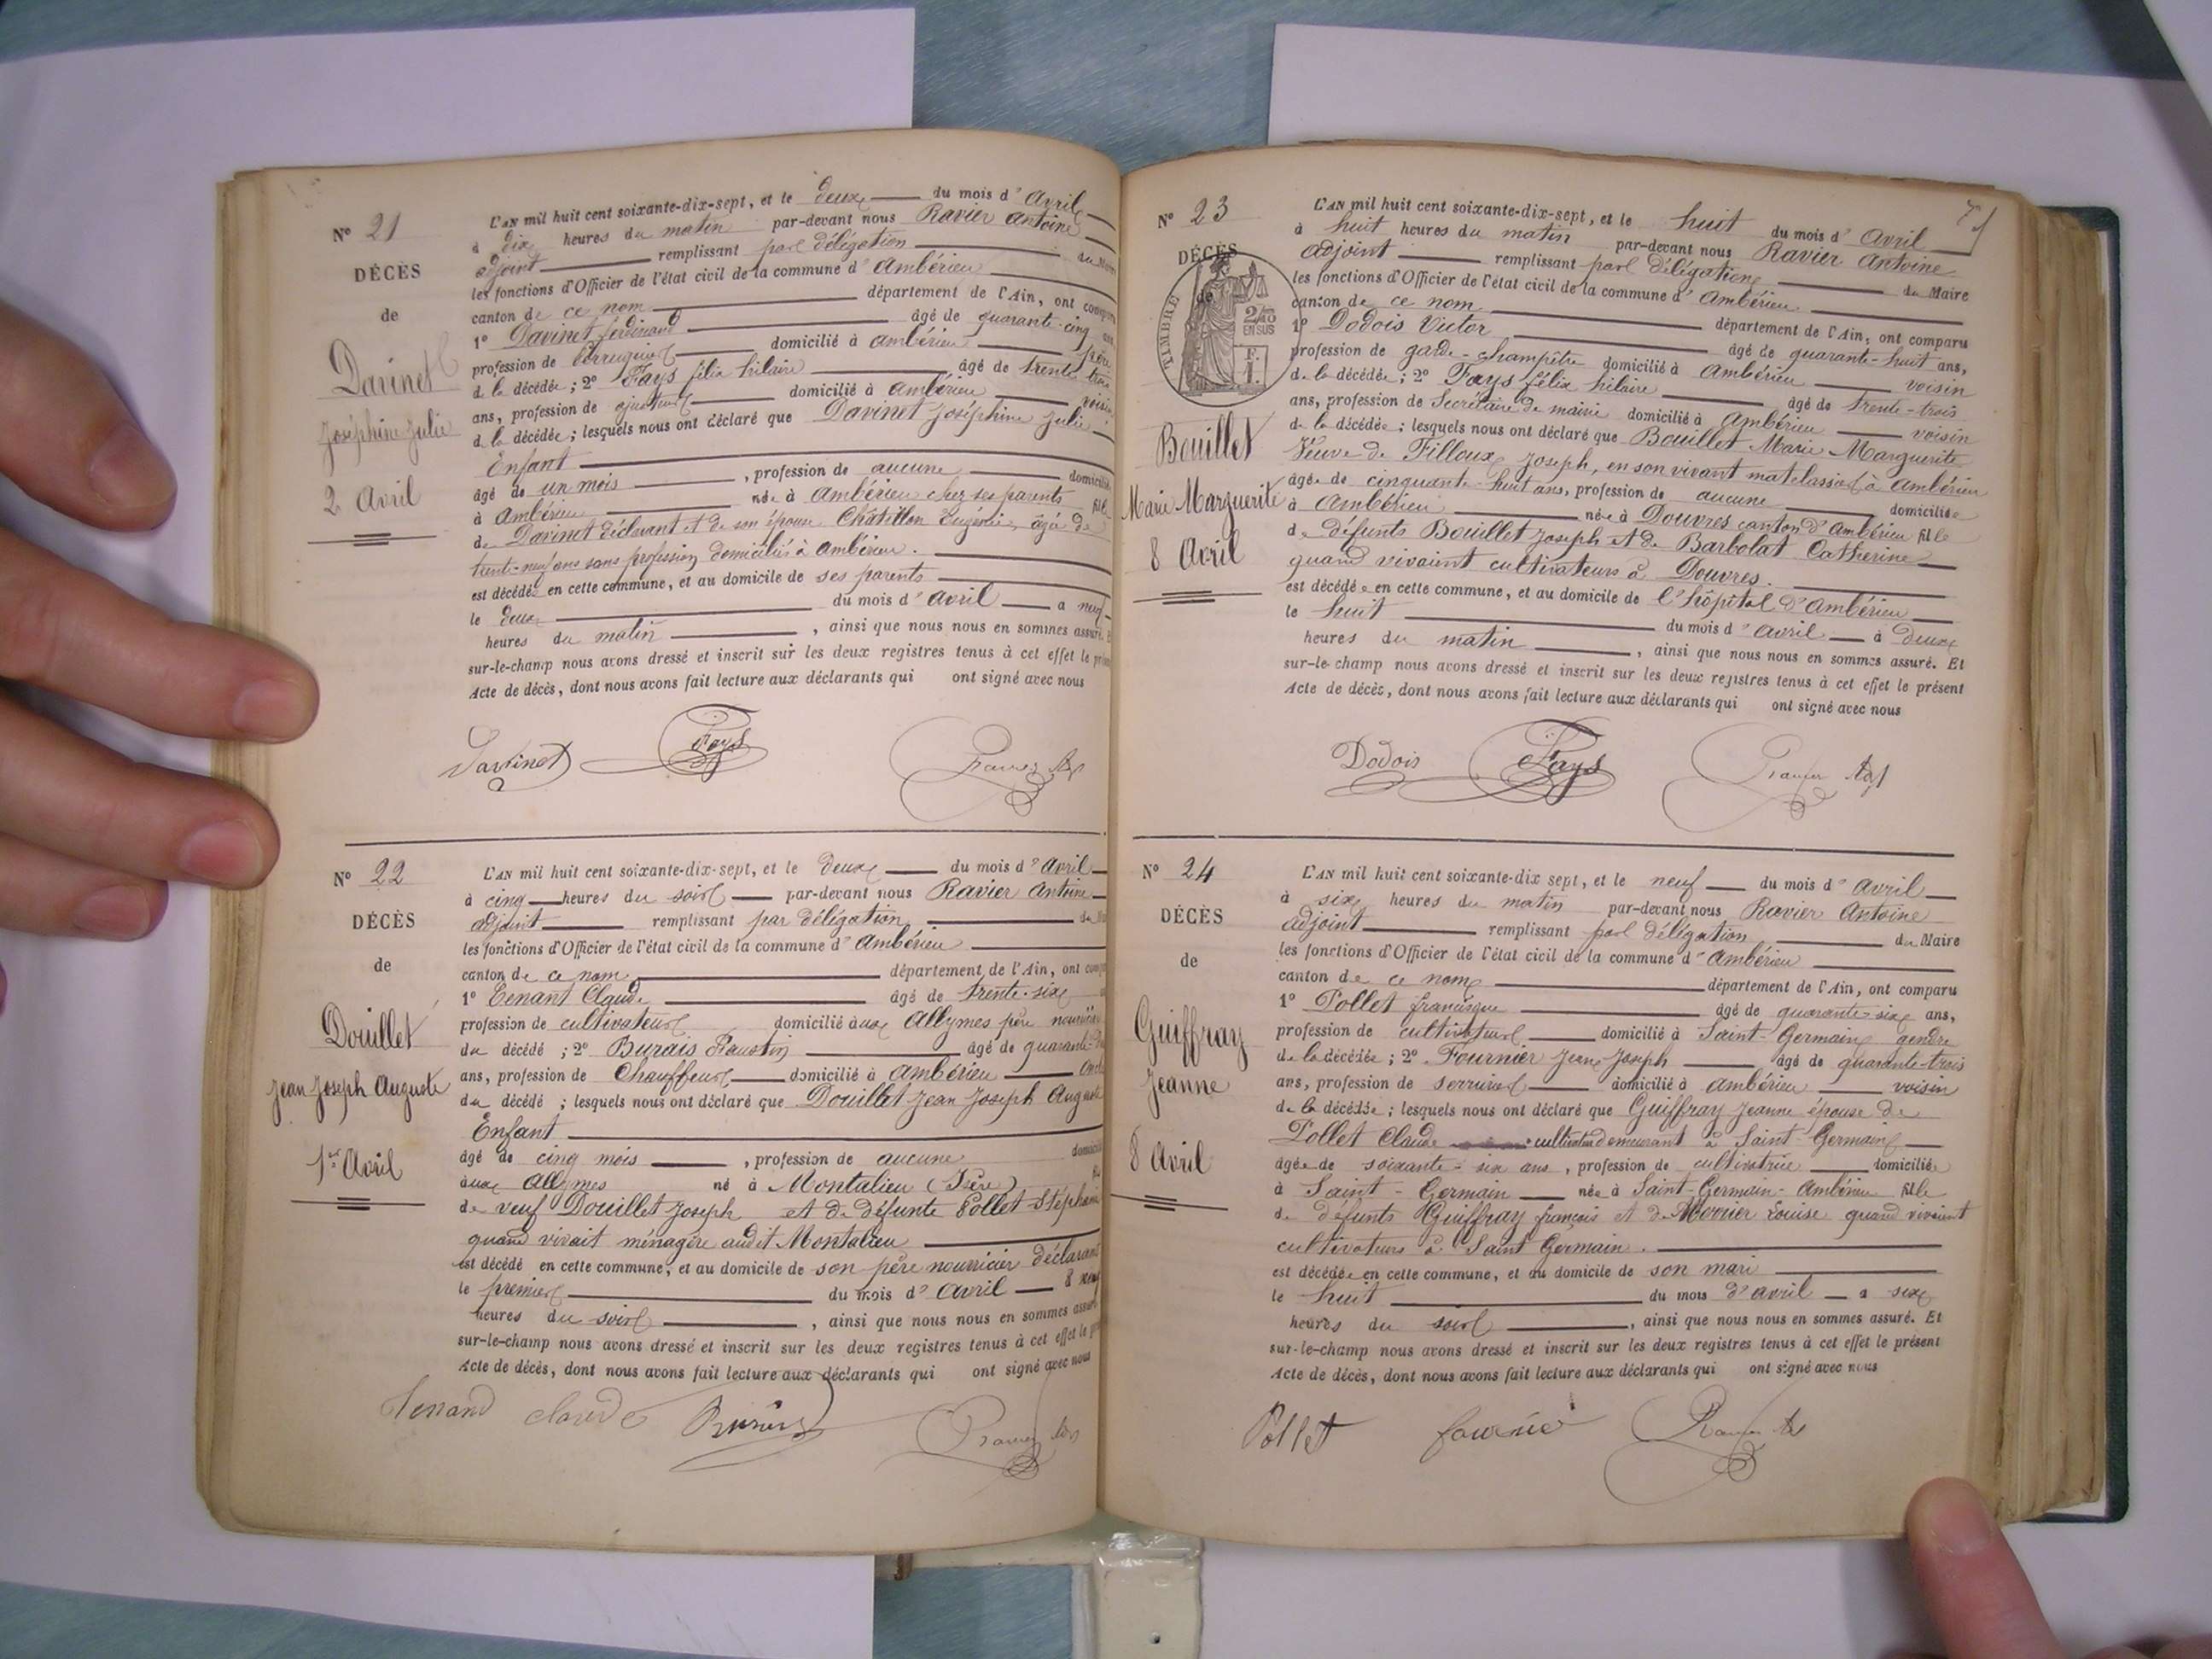 N° 21
DÉCÈS
de
Davinet
Joséphine Julie
2 Avril
L'AN mil huit cent soixante-dix-sept, et le deux du mois d'Avril
à dix heures du matin par-devant nous Ravier Antoine
adjoint remplissant par délégation du Maire
les fonctions d'Officier de l'état civil de la commune d'Ambérieu
canton de ce nom département de l'Ain, ont comparu
1° Davinet ferdinand âgé de quarante-cinq ans,
profession de domicilié à Ambérieu père
de la décédée ; 2° Fays félix hilaire âgé de trente trois
ans, profession de ajusteur domicilié à Ambérieu voisin
de la décédée ; lesquels nous ont déclaré que Davinet Joséphine Julie
Enfant
âgé de un mois , profession de aucune domiciliée
à Ambérieu née à Ambérieu chez ses parents fille
de Davinet déclarant et de son épouse Châtillon Eugénie, âgée de
trente-neuf ans sans profession domiciliés à Ambérieu.
est décédée en cette commune, et au domicile de ses parents
le deux du mois d'Avril a neuf
heures du matin , ainsi que nous nous en sommes assuré. Et
sur-le-champ nous avons dressé et inscrit sur les deux registres tenus à cet effet le présent
Acte de décès, dont nous avons fait lecture aux déclarants qui ont signé avec nous
Davinet Fays Ravier Adj
N° 22
DÉCÈS
de
Douillet
Jean Joseph Auguste
1er Avril
L'AN mil huit cent soixante-dix-sept, et le deux du mois d'Avril
à cinq heures du soir par-devant nous Ravier Antoine
adjoint remplissant par délégation du Maire
les fonctions d'Officier de l'état civil de la commune d'Ambérieu
canton de ce nom département de l'Ain, ont comparu
1° Tenant Claude âgé de trente-six
profession de cultivateur domicilié aux Allymes père nourricier
du décédé ; 2° Burais Faustin âgé de quarante
ans, profession de Chauffeur domicilié à Ambérieu
du décédé ; lesquels nous ont déclaré que Douillet Jean Joseph Auguste
Enfant
âgé de cinq mois , profession de aucune domicilié
aux Allymes né à Montalieu (Isère) fils
de veuf Douillet Joseph et de défunte Pollet Stéphanie
quand vivait ménagère audit Montalieu
est décédé en cette commune, et au domicile de son père nourricier déclarant
le premier du mois d'Avril à neuf
heures du soir , ainsi que nous nous en sommes assuré
sur-le-champ nous avons dressé et inscrit sur les deux registres tenus à cet effet le
Acte de décès, dont nous avons fait lecture aux déclarants qui ont signé avec nous
Tenand claude Ravier Adj
71
N° 23
DÉCÈS
de
TIMBRE
2/10
EN SUS
F.
1.
Bouillet
Marie Marguerite
8 Avril
L'AN mil huit cent soixante-dix-sept, et le huit du mois d'Avril
à huit heures du matin par-devant nous Ravier Antoine
adjoint remplissant par délégation du Maire
les fonctions d'Officier de l'état civil de la commune d'Ambérieu
canton de ce nom département de l'Ain, ont comparu
1° Dodois Victor âgé de quarante-huit ans,
profession de garde-champêtre domicilié à Ambérieu voisin
de la décédée ; 2° Fays félix hilaire âgé de trente-trois
ans, profession de Secrétaire de mairie domicilié à Ambérieu voisin
de la décédée ; lesquels nous ont déclaré que Bouillet Marie Marguerite
Veuve de Filloux Joseph, en son vivant matelassier à Ambérieu
âgée de cinquante-huit ans, profession de aucune domiciliée
à Ambérieu née à Douvres canton d'Ambérieu fille
de défunts Bouillet Joseph et de Barbolat Catherine
quand vivaient cultivateurs à Douvres.
est décédée en cette commune, et au domicile de l'hôpital d'Ambérieu
le huit du mois d'Avril à deux
heures du matin , ainsi que nous nous en sommes assuré. Et
sur-le-champ nous avons dressé et inscrit sur les deux registres tenus à cet effet le présent
Acte de décès, dont nous avons fait lecture aux déclarants qui ont signé avec nous
Dodois Fays Ravier Adj
N° 24
DÉCÈS
de
Guiffray
Jeanne
8 Avril
L'AN mil huit cent soixante-dix sept, et le neuf du mois d'Avril
à six heures du matin par-devant nous Ravier Antoine
adjoint remplissant par délégation du Maire
les fonctions d'Officier de l'état civil de la commune d'Ambérieu
canton de ce nom département de l'Ain, ont comparu
1° Pollet françisque âgé de quarante-six ans,
profession de cultivateur domicilié à Saint-Germain gendre
de la décédée ; 2° Fournier Jean Joseph âgé de quarante-trois
ans, profession de serrurier domicilié à Ambérieu voisin
de la décédée ; lesquels nous ont déclaré que Guiffray Jeanne épouse de
Pollet Claude cultivateur demeurant à Saint-Germain
âgée de soixante-six ans , profession de cultivatrice domiciliée
à Saint-Germain née à Saint-Germain-Ambérieu fille
de défunts Guiffray françois et de Morrier Louise quand vivaient
cultivateurs à Saint Germain.
est décédée en cette commune, et au domicile de son mari
le huit du mois d'avril à six
heures du soir , ainsi que nous nous en sommes assuré. Et
sur-le-champ nous avons dressé et inscrit sur les deux registres tenus à cet effet le présent
Acte de décès, dont nous avons fait lecture aux déclarants qui ont signé avec nous
Pollet fournié Ravier Adj